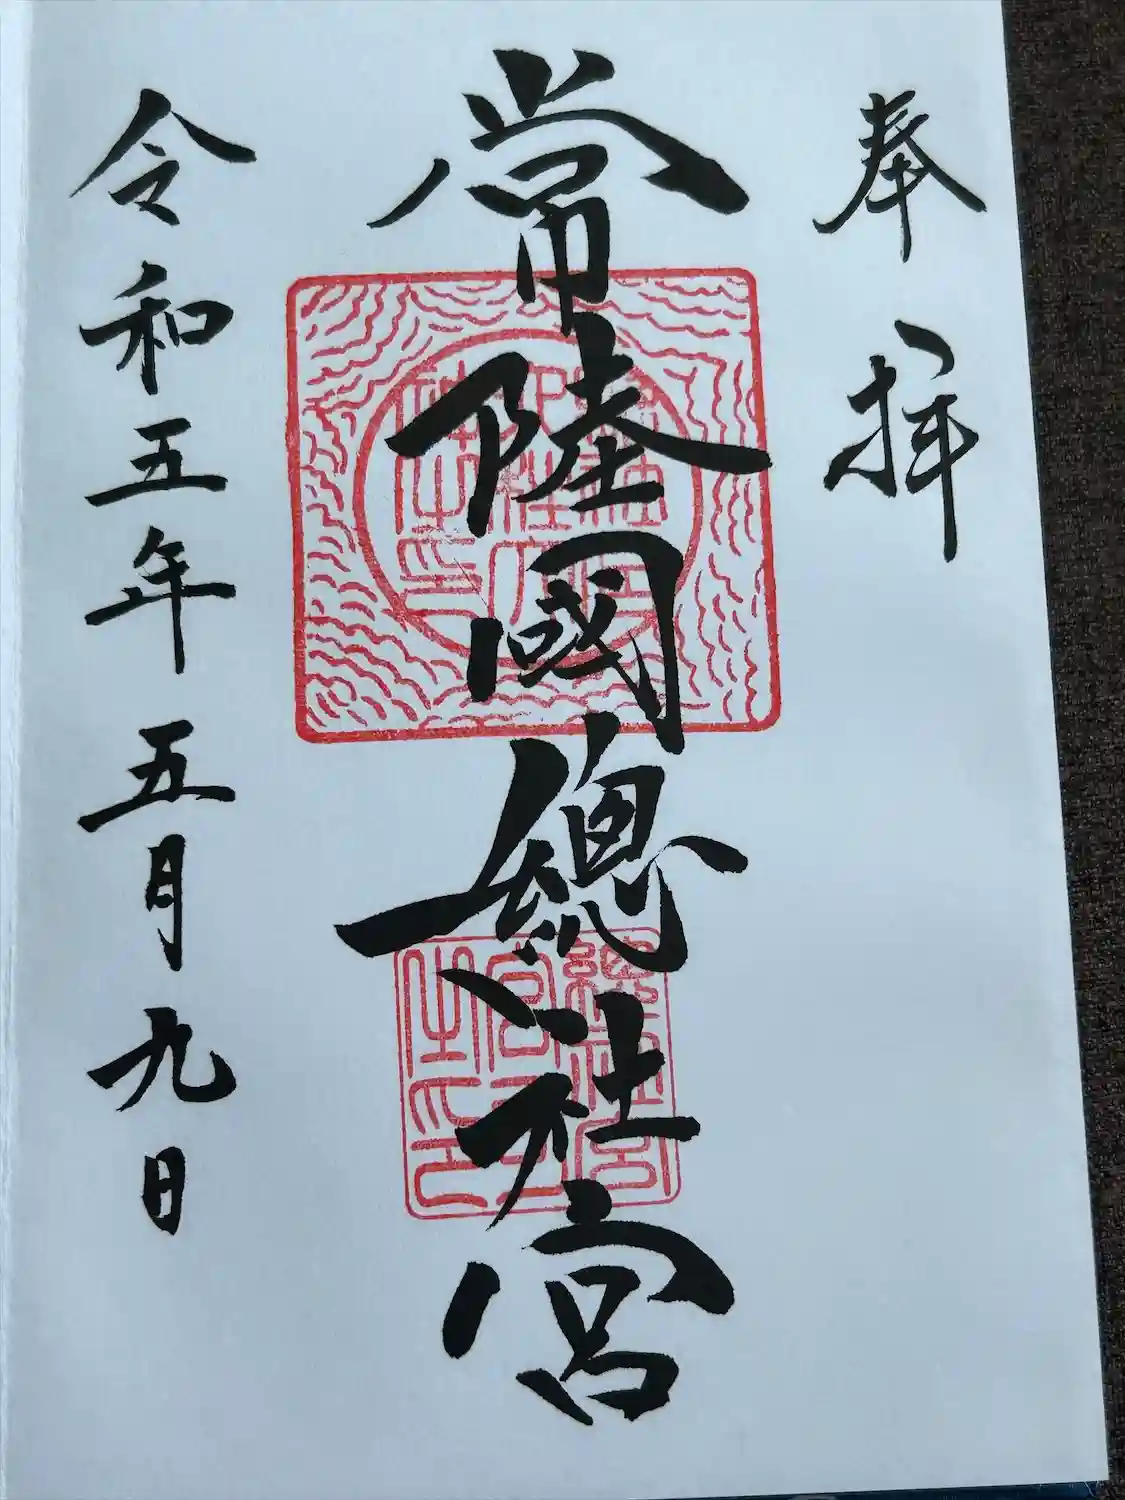 奉拝
常陸國總社宮
令和五年五月九日